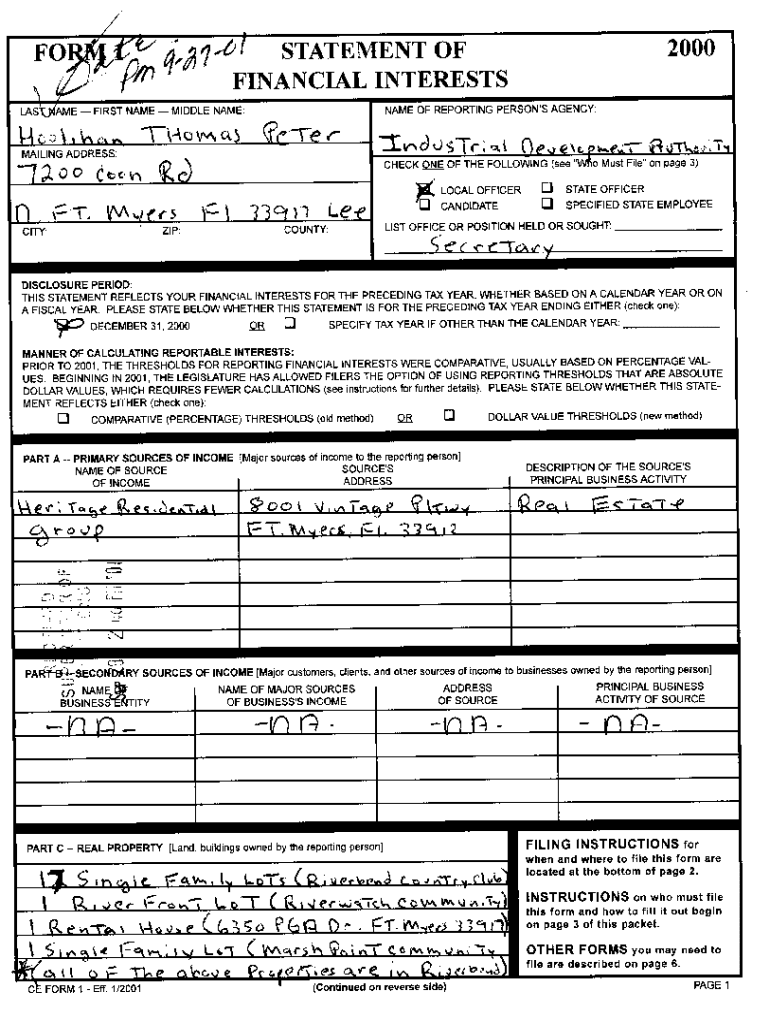 FORM 1 STATEMENT OF 2000
Date Pm 9-27-01
FINANCIAL INTERESTS
LAST NAME — FIRST NAME — MIDDLE NAME:
Hoolihan Thomas Peter
MAILING ADDRESS:
7200 Coon Rd
N. FT. Myers Fl 33917 Lee
CITY: ZIP: COUNTY:
NAME OF REPORTING PERSON'S AGENCY:
Industrial Development Authority
CHECK ONE OF THE FOLLOWING (see "Who Must File" on page 3)
LOCAL OFFICER STATE OFFICER
CANDIDATE SPECIFIED STATE EMPLOYEE
LIST OFFICE OR POSITION HELD OR SOUGHT:
Secretary
DISCLOSURE PERIOD:
THIS STATEMENT REFLECTS YOUR FINANCIAL INTERESTS FOR THE PRECEDING TAX YEAR, WHETHER BASED ON A CALENDAR YEAR OR ON
A FISCAL YEAR. PLEASE STATE BELOW WHETHER THIS STATEMENT IS FOR THE PRECEDING TAX YEAR ENDING EITHER (check one):
DECEMBER 31, 2000 OR SPECIFY TAX YEAR IF OTHER THAN THE CALENDAR YEAR:
MANNER OF CALCULATING REPORTABLE INTERESTS:
PRIOR TO 2001, THE THRESHOLDS FOR REPORTING FINANCIAL INTERESTS WERE COMPARATIVE, USUALLY BASED ON PERCENTAGE VAL-
UES. BEGINNING IN 2001, THE LEGISLATURE HAS ALLOWED FILERS THE OPTION OF USING REPORTING THRESHOLDS THAT ARE ABSOLUTE
DOLLAR VALUES, WHICH REQUIRES FEWER CALCULATIONS (see instructions for further details). PLEASE STATE BELOW WHETHER THIS STATE-
MENT REFLECTS EITHER (check one):
COMPARATIVE (PERCENTAGE) THRESHOLDS (old method) OR DOLLAR VALUE THRESHOLDS (new method)
PART A -- PRIMARY SOURCES OF INCOME [Major sources of income to the reporting person]
NAME OF SOURCE SOURCE'S DESCRIPTION OF THE SOURCE'S
OF INCOME ADDRESS PRINCIPAL BUSINESS ACTIVITY
Heritage Residential 8001 Vintage Pkwy Real Estate
group FT. Myers, Fl. 33912
PART B -- SECONDARY SOURCES OF INCOME [Major customers, clients, and other sources of income to businesses owned by the reporting person]
NAME OF NAME OF MAJOR SOURCES ADDRESS PRINCIPAL BUSINESS
BUSINESS ENTITY OF BUSINESS'S INCOME OF SOURCE ACTIVITY OF SOURCE
-NA- -NA- -NA- -NA-
PART C -- REAL PROPERTY [Land, buildings owned by the reporting person]
17 Single Family Lots (Riverbend Country Club)
1 River Front Lot (Riverwatch Community)
1 Rental House (6350 PGA Dr. FT. Myers 33917)
1 Single Family Lot (Marsh Point community
*(all of The above Properties are in Riverbend)
FILING INSTRUCTIONS for
when and where to file this form are
located at the bottom of page 2.
INSTRUCTIONS on who must file
this form and how to fill it out begin
on page 3 of this packet.
OTHER FORMS you may need to
file are described on page 6.
CE FORM 1 - Eff. 1/2001 (Continued on reverse side) PAGE 1